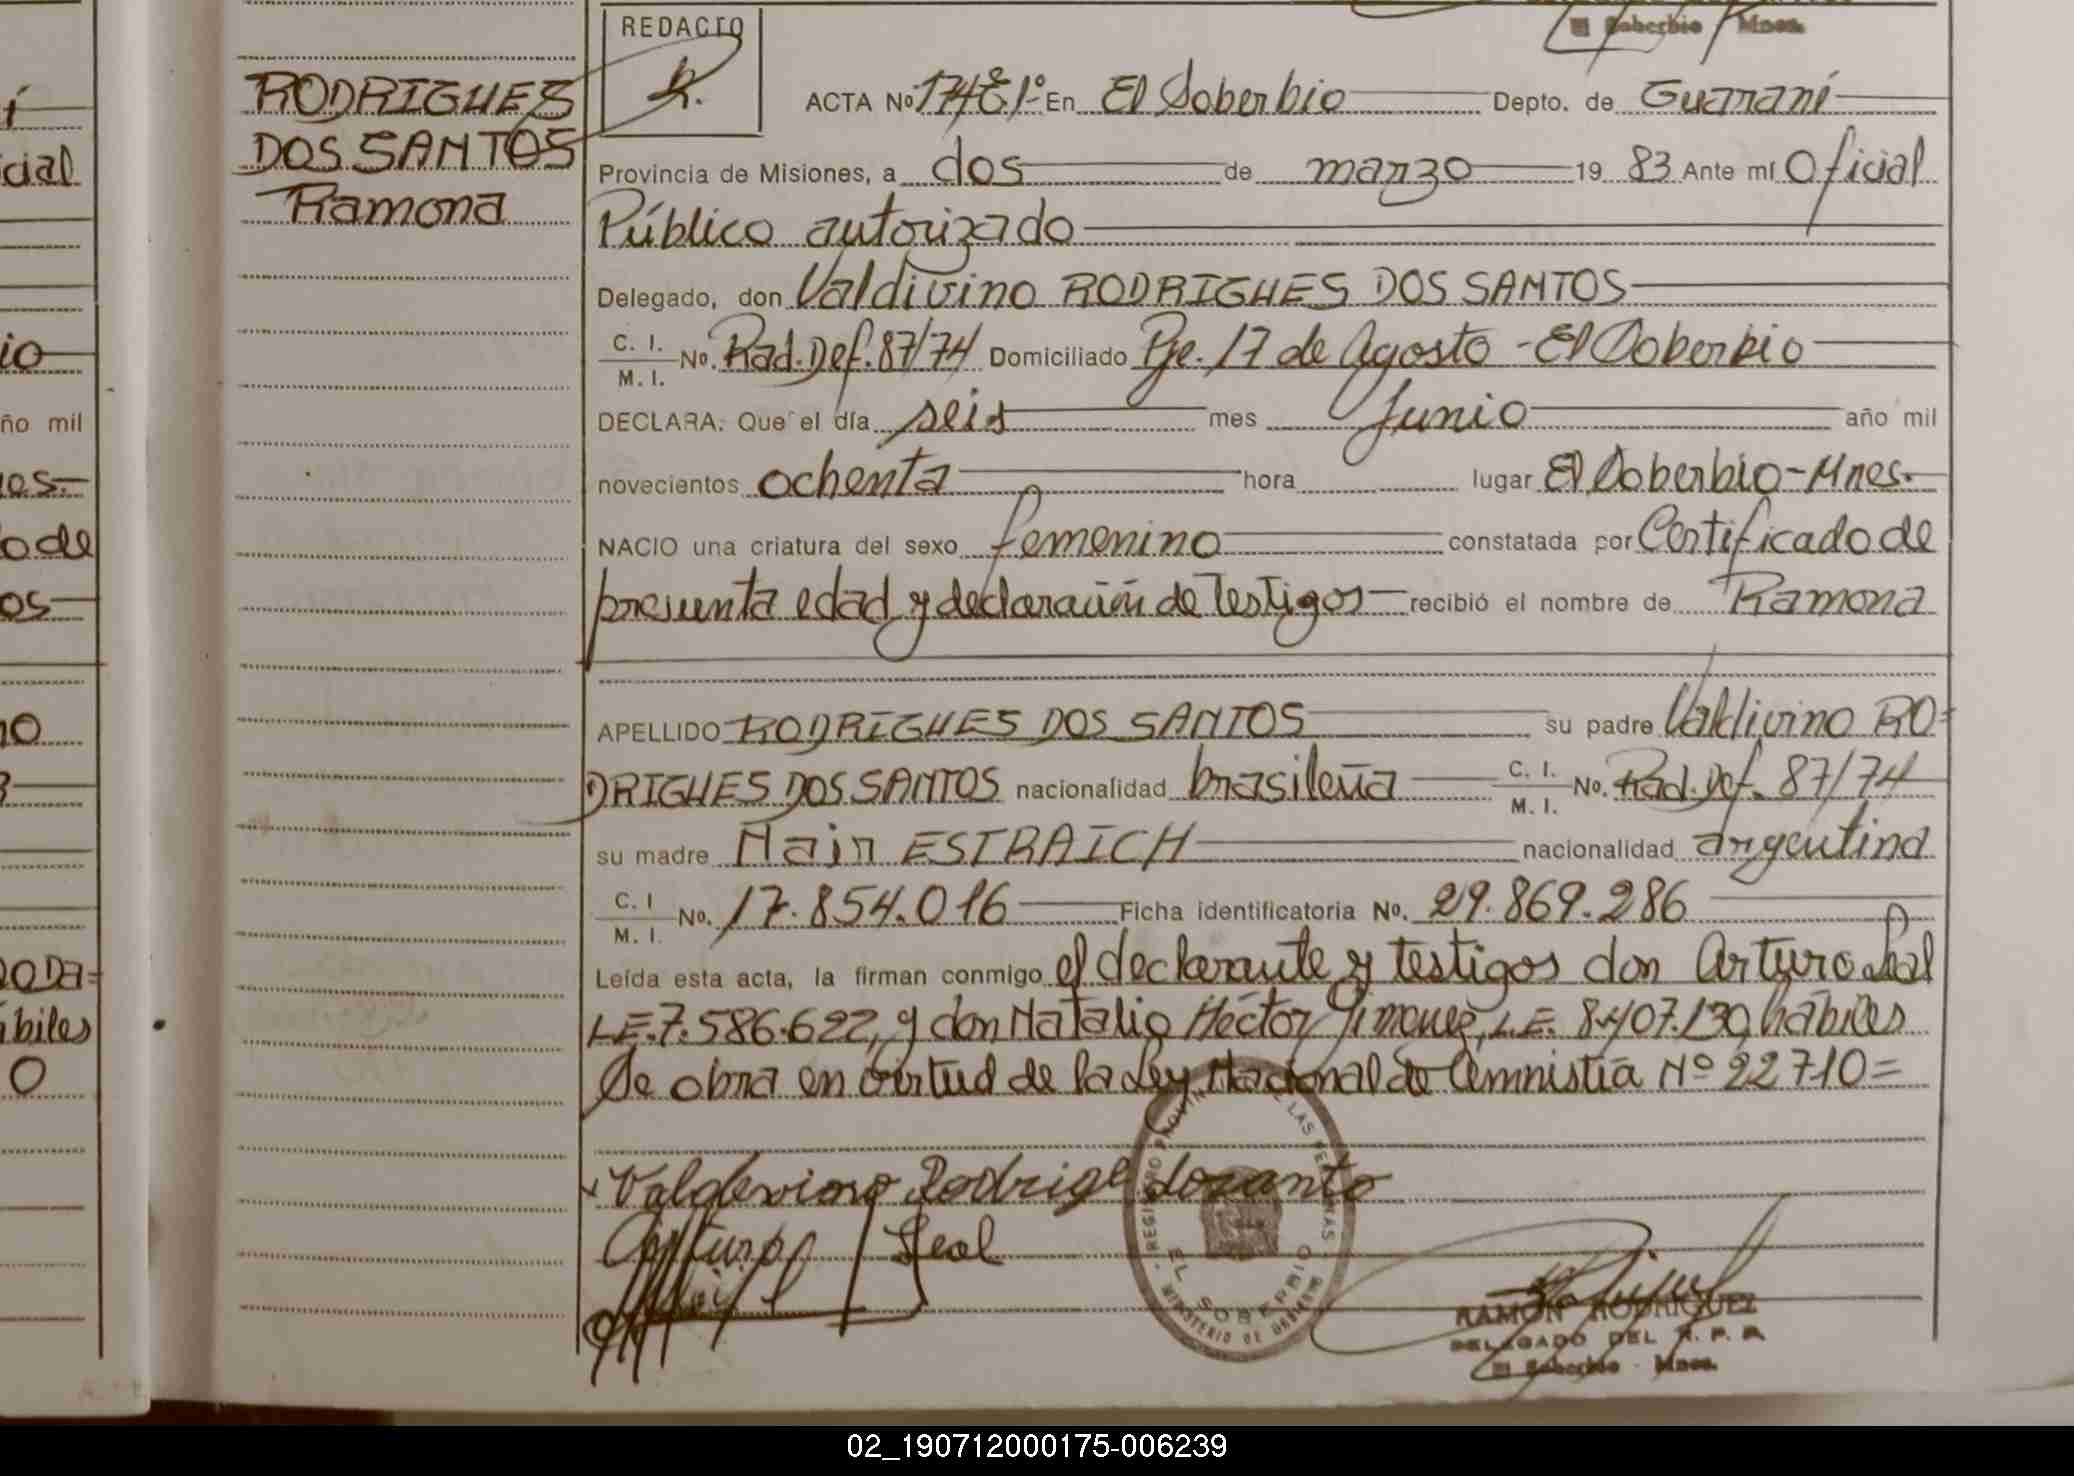 Soberbio Mnes.
REDACTO
RODRIGUES
DOS SANTOS
Ramona
ACTA Nº 174 E1º En El Soberbio Depto. de Guaraní
Provincia de Misiones, a dos de marzo 19 83 Ante mí Oficial
Público autorizado
Delegado, don Valdivino RODRIGUES DOS SANTOS
C. I. / M. I. No. Rad. Def. 87/74 Domiciliado Pje. 17 de Agosto - El Soberbio
DECLARA: Que el día seis mes Junio año mil
novecientos ochenta hora lugar El Soberbio - Mnes.
NACIO una criatura del sexo femenino constatada por Certificado de
presunta edad y declaración de Testigos recibió el nombre de Ramona
APELLIDO RODRIGUES DOS SANTOS su padre Valdivino RO=
DRIGUES DOS SANTOS nacionalidad brasileña C. I. / M. I. No. Rad. Def. 87/74
su madre Nair ESTRAICH nacionalidad argentina
C. I / M. I. No. 17.854.016 Ficha identificatoria No. 29.869.286
Leída esta acta, la firman conmigo el declarante y testigos don Arturo Leal
L.E. 7.586.622, y don Natalio Héctor Jimenez, L.E. 8.407.130, hábiles
Se obra en virtud de la Ley Nacional de Amnistía Nº 22710=
Valdevino Rodrige dosanto
Arturo Leal
REGISTRO PROVINCIAL DE LAS PERSONAS
EL SOBERBIO
MINISTERIO DE GOBIERNO
RAMON RODRIGUEZ
DELEGADO DEL R. P. P.
El Soberbio - Mnes.
cial
io
ño mil
os.
o de
os
no
ábiles
0
02_190712000175-006239